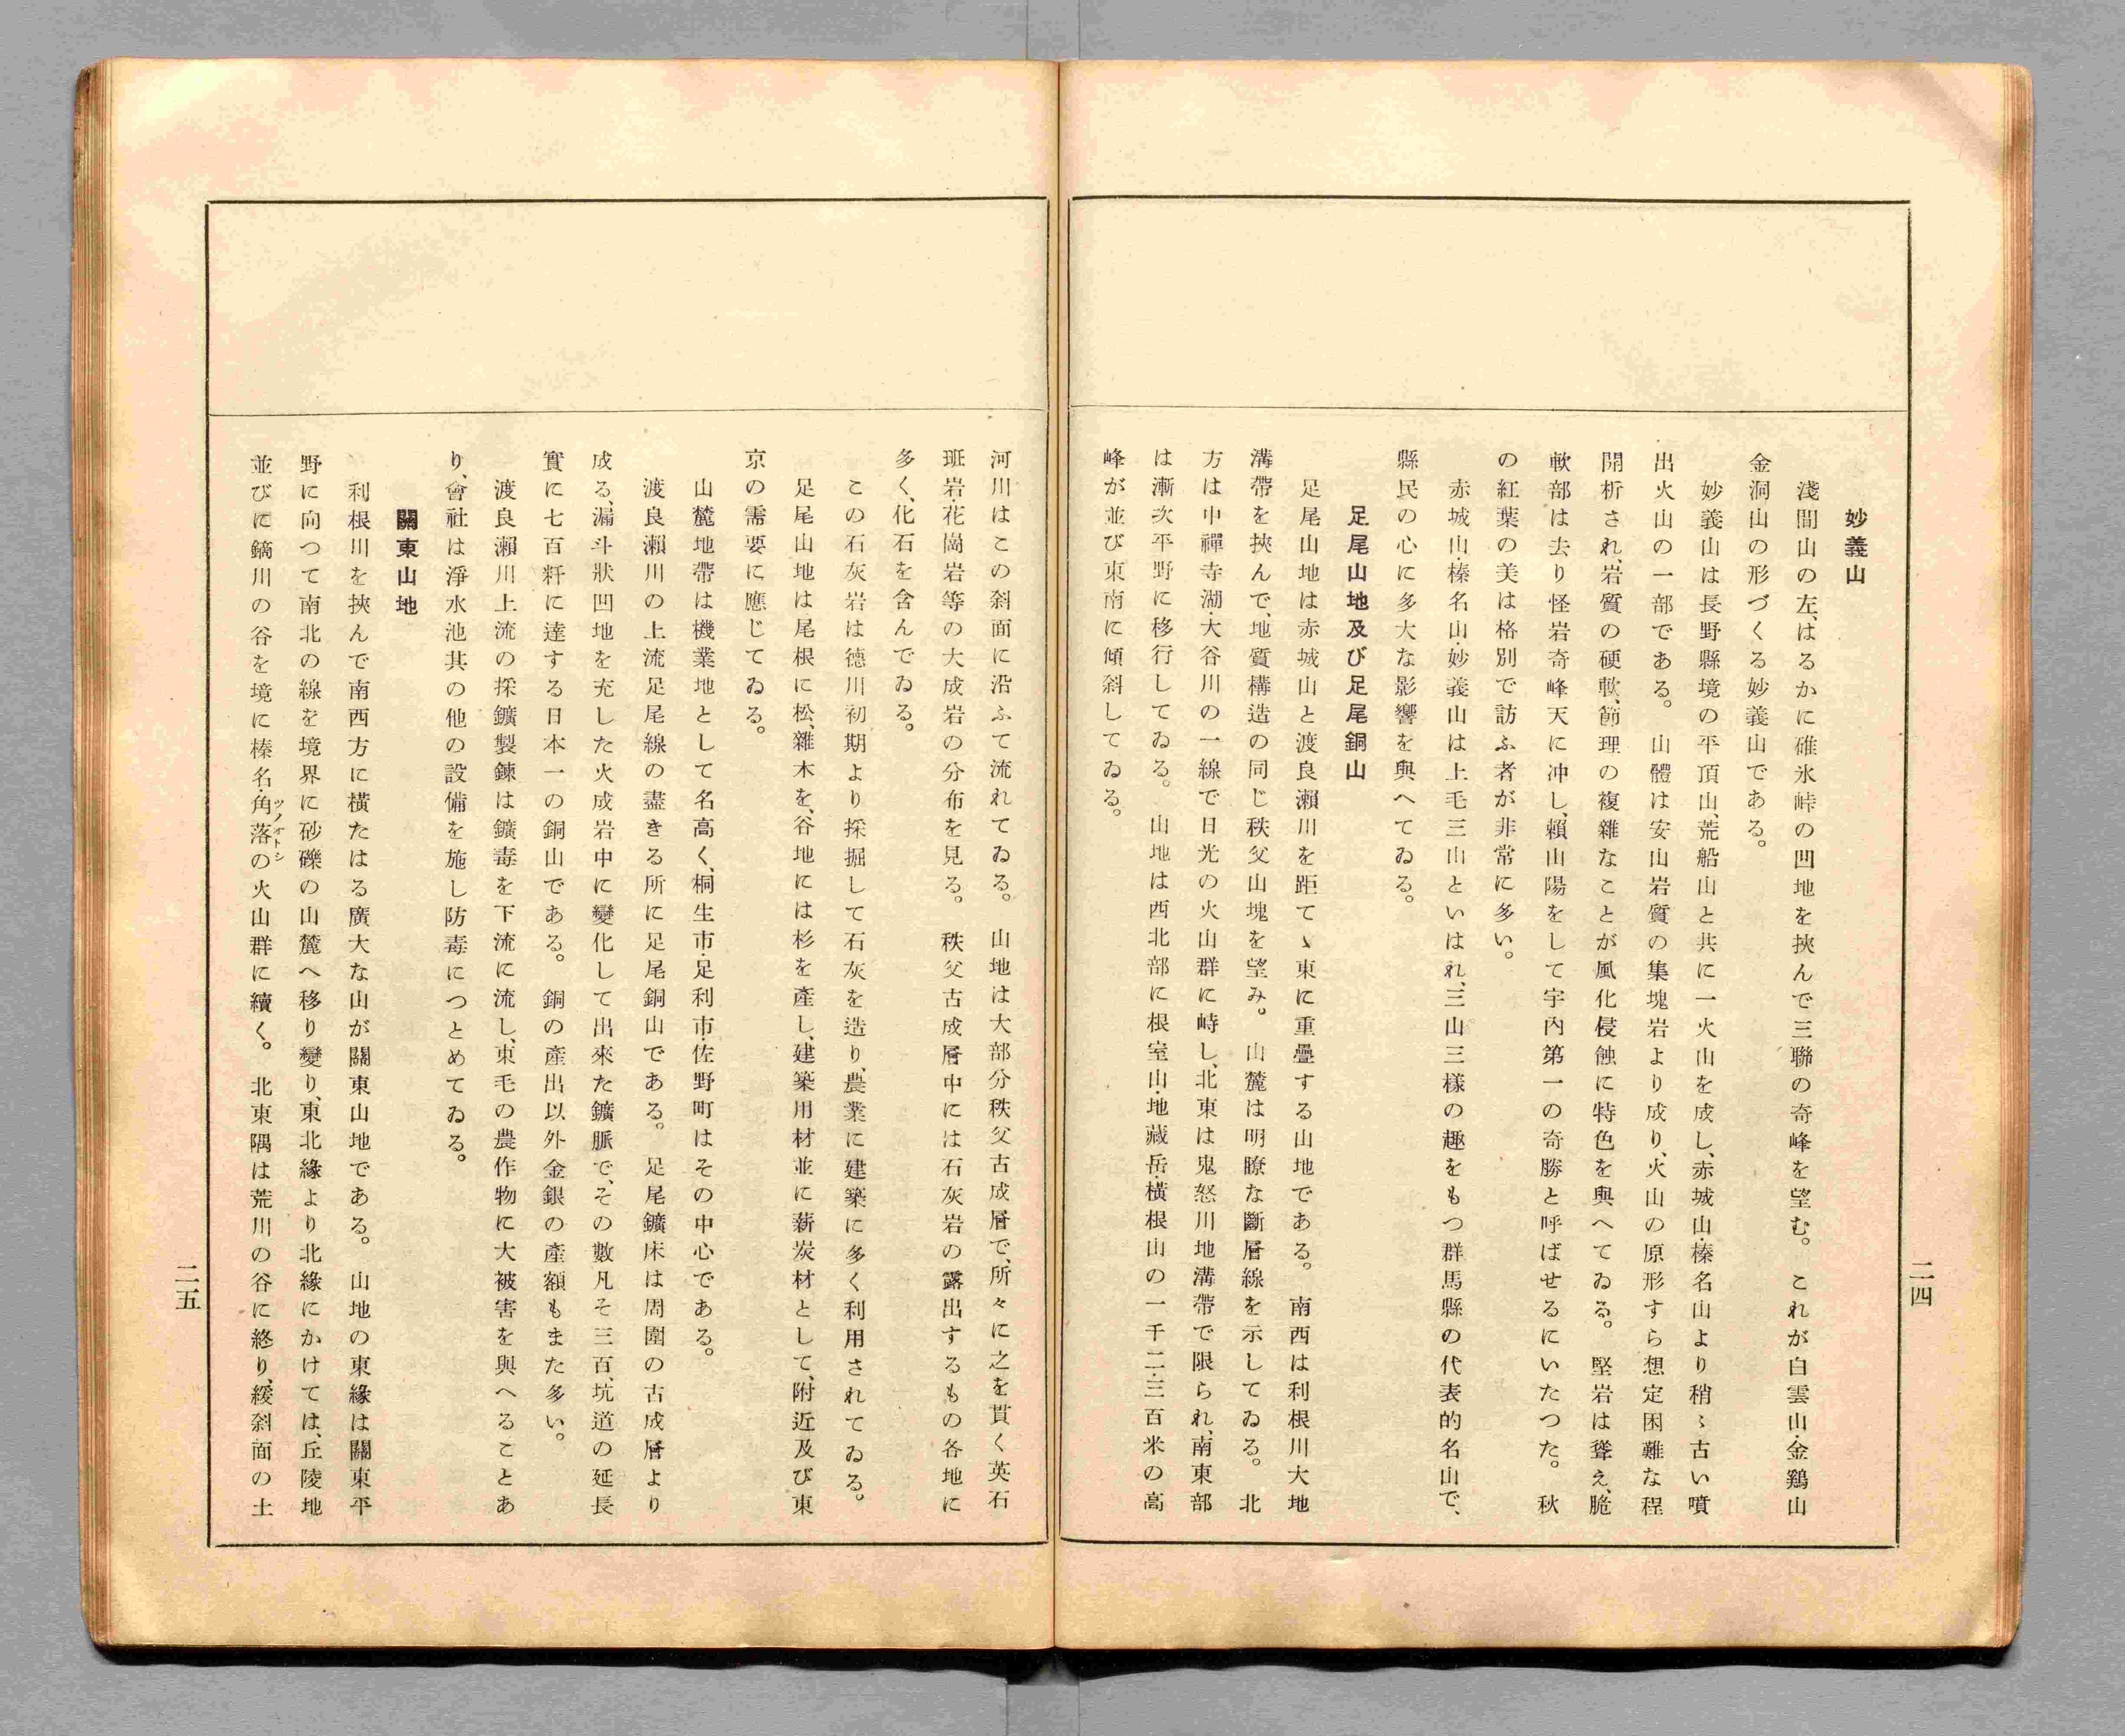 妙義山
淺間山の左、はるかに碓氷峠の凹地を挾んで三聯の奇峰を望む。これが白雲山・金鷄山
金洞山の形づくる妙義山である。
妙義山は長野縣境の平頂山、荒船山と共に一火山を成し、赤城山・榛名山より稍〻古い噴
出火山の一部である。山體は安山岩質の集塊岩より成り、火山の原形すら想定困難な程
開析され、岩質の硬軟、節理の複雜なことが風化侵蝕に特色を與へてゐる。堅岩は聳え、脆
軟部は去り怪岩奇峰天に冲し、賴山陽をして宇內第一の奇勝と呼ばせるにいたつた。秋
の紅葉の美は格別で訪ふ者が非常に多い。
赤城山・榛名山・妙義山は上毛三山といはれ、三山三樣の趣をもつ群馬縣の代表的名山で、
縣民の心に多大な影響を與へてゐる。
足尾山地及び足尾銅山
足尾山地は赤城山と渡良瀨川を距てゝ東に重疊する山地である。南西は利根川大地
溝帶を挾んで、地質構造の同じ秩父山塊を望み。山麓は明瞭な斷層線を示してゐる。北
方は中禪寺湖・大谷川の一線で日光の火山群に峙し、北東は鬼怒川地溝帶で限られ、南東部
は漸次平野に移行してゐる。山地は西北部に根室山・地藏岳・橫根山の一千二・三百米の高
峰が並び東南に傾斜してゐる。
二四
河川はこの斜面に沿ふて流れてゐる。山地は大部分秩父古成層で、所々に之を貫く英石
班岩・花崗岩等の大成岩の分布を見る。秩父古成層中には石灰岩の露出するもの各地に
多く、化石を含んでゐる。
この石灰岩は德川初期より採掘して石灰を造り、農業に建築に多く利用されてゐる。
足尾山地は尾根に松、雜木を、谷地には杉を產し、建築用材並に薪炭材として、附近及び東
京の需要に應じてゐる。
山麓地帶は機業地として名高く、桐生市・足利市・佐野町はその中心である。
渡良瀨川の上流足尾線の盡きる所に足尾銅山である。足尾鑛床は周圍の古成層より
成る、漏斗狀凹地を充した火成岩中に變化して出來た鑛脈で、その數凡そ三百、坑道の延長
實に七百粁に達する日本一の銅山である。銅の產出以外金銀の產額もまた多い。
渡良瀨川上流の採鑛製鍊は鑛毒を下流に流し、東毛の農作物に大被害を與へることあ
り、會社は淨水池其の他の設備を施し防毒につとめてゐる。
關東山地
利根川を挾んで南西方に橫たはる廣大な山が關東山地である。山地の東緣は關東平
野に向つて南北の線を境界に砂礫の山麓へ移り變り、東北緣より北緣にかけては、丘陵地
並びに鏑川の谷を境に榛名・角落ツノオトシの火山群に續く。北東隅は荒川の谷に終り、緩斜面の土
二五